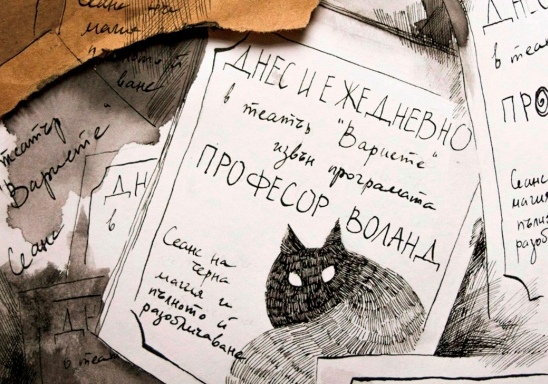 Сеанс на
магия
пълното й
ване
театър
"Вариете"
Сеанс
ДН
в
ДНЕС И ЕЖЕДНЕВНО
в театъъ "Вариете"
извън програмата
ПРОФЕСОР ВОЛАНД
Сеанс на
черна
магия и
пълното й
разобличаване
ДНЕС
в теат
ПРО
Сеанс
магия
пълно
разоб
в теа